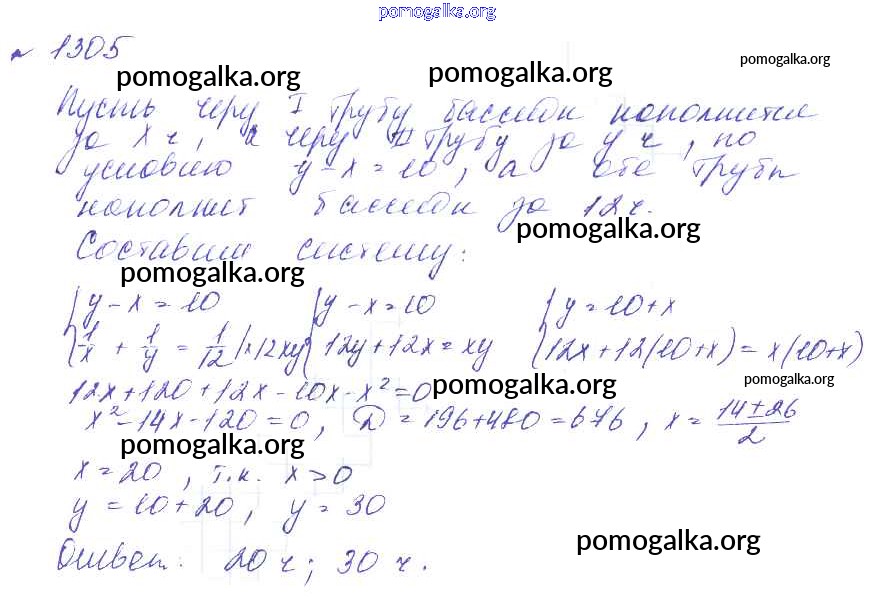 pomogalka.org
№ 1305
pomogalka.org pomogalka.org pomogalka.org
Пусть через I трубу бассейн наполнится
за x ч, а через II трубу за y ч, по
условию y - x = 10, а обе трубы
наполнят бассейн за 12 ч.
pomogalka.org
Составим систему:
pomogalka.org
{ y - x = 10 { y - x = 10 { y = 10 + x
{ 1/x + 1/y = 1/12 | × 12xy { 12y + 12x = xy { 12x + 12(10+x) = x(10+x)
pomogalka.org
12x + 120 + 12x - 10x - x² = 0 pomogalka.org
x² - 14x - 120 = 0, D = 196 + 480 = 676, x = (14 ± 26)/2
pomogalka.org
x = 20, т.к. x > 0
y = 10 + 20, y = 30
pomogalka.org
Ответ: 20 ч; 30 ч.